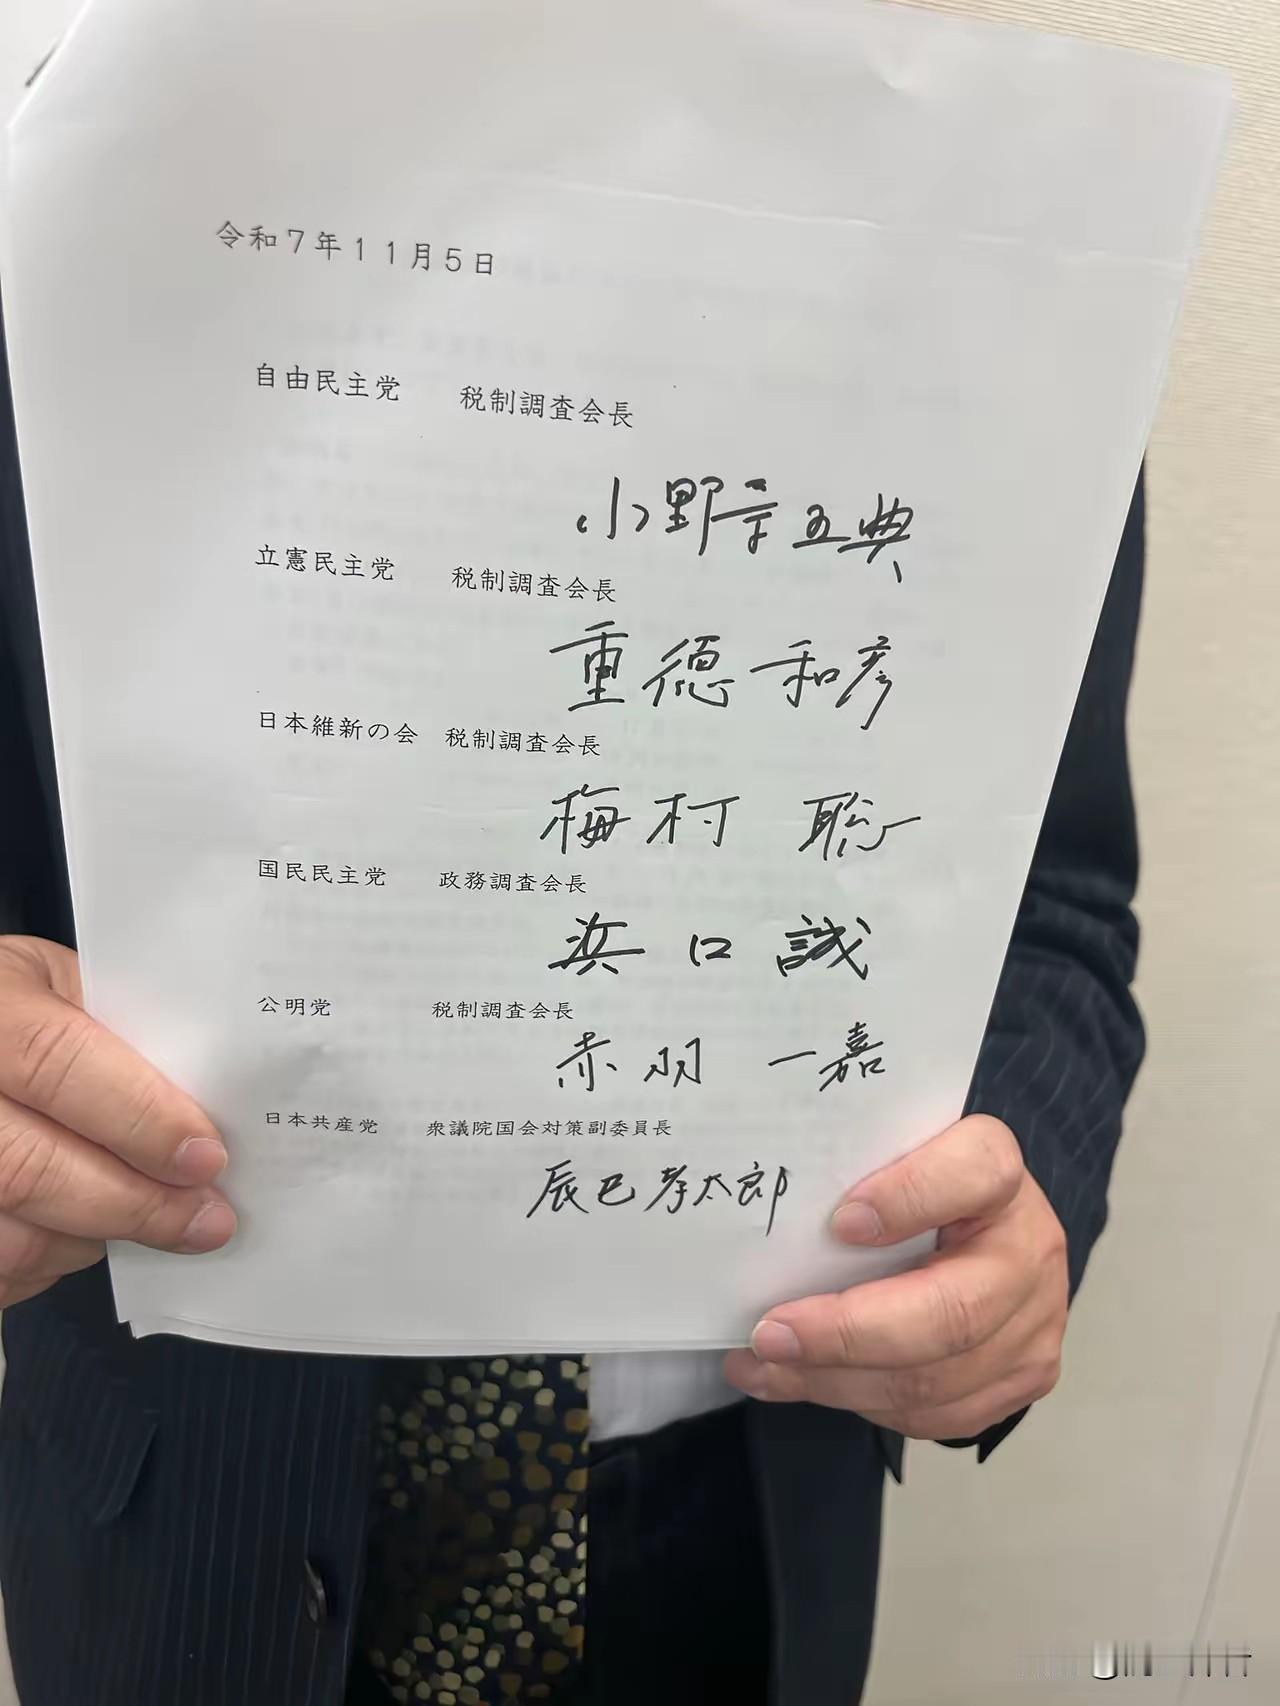 令和７年１１月５日
自由民主党　税制調査会長
小野寺五典
立憲民主党　税制調査会長
重徳和彦
日本維新の会　税制調査会長
梅村　聡
国民民主党　政務調査会長
浜口誠
公明党　税制調査会長
赤羽一嘉
日本共産党　衆議院国会対策副委員長
辰巳孝太郎